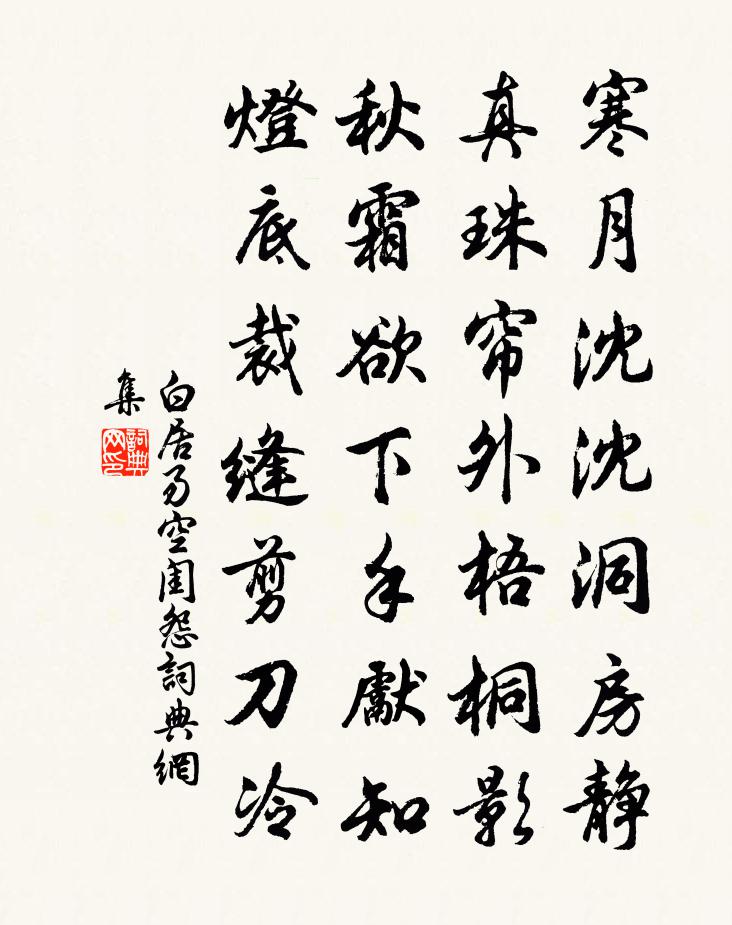 寒月沈沈洞房静
真珠帘外梧桐影
秋霜欲下手獻知
燈底裁縫剪刀冷
白居易空閨怨詞典網
集
詞典
网印